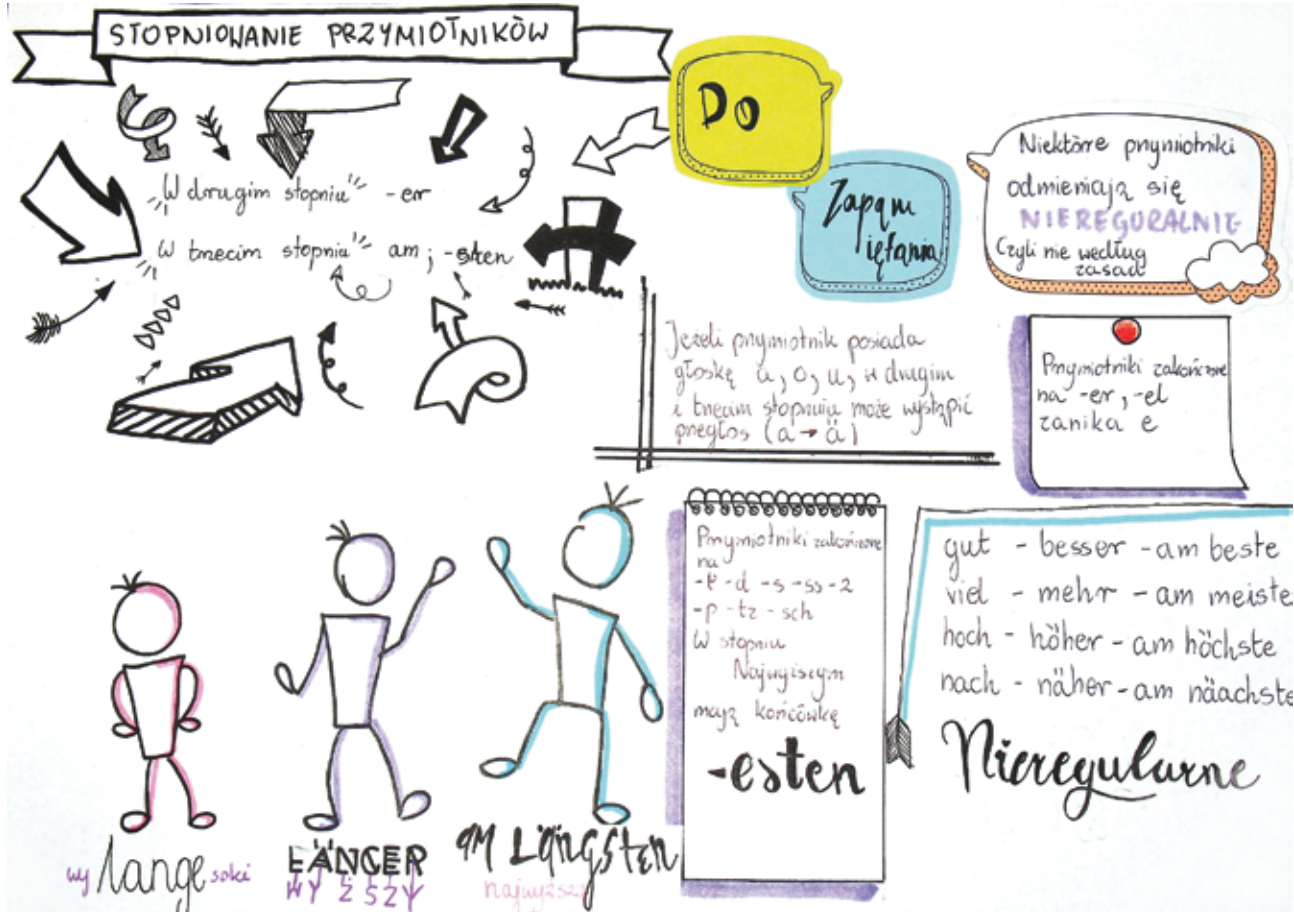 STOPNIOWANIE PRZYMIOTNIKÓW
W drugim stopniu -er
W trzecim stopniu am ; -sten
Do
Zapam
iętania
Niektóre przymiotniki
odmieniają się
NIEREGURALNIE
Czyli nie według
zasad
Jeżeli przymiotnik posiada
głoskę a, o, u, w drugim
i trzecim stopniu może wystąpić
przegłos (a → ä)
Przymiotniki zakończone
na -er, -el
zanika e
Przymiotniki zakończone
na
-t -d -s -ss -z
-p -tz - sch
W stopniu
Najwyższym
mają końcówkę
-esten
gut - besser - am beste
viel - mehr - am meiste
hoch - höher - am höchste
nach - näher - am näachste
Nieregularne
wy lange soki
LÄNGER
WYŻSZY
AM LÄNGSTEN
najwyższy